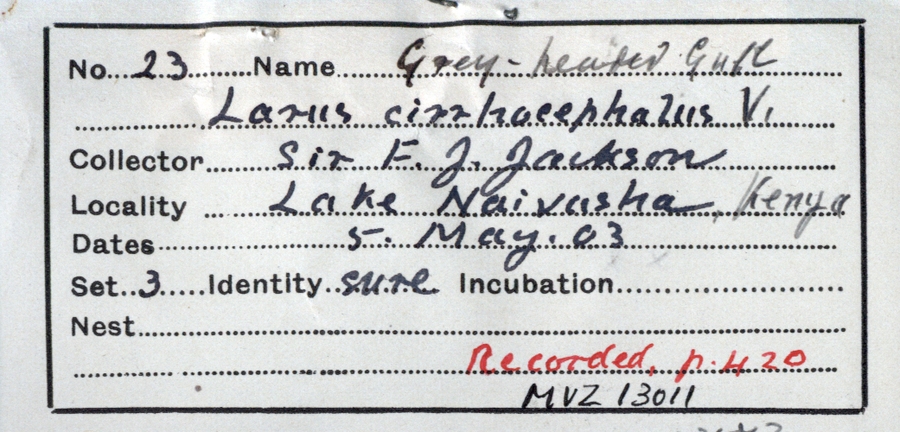 No. 23 Name Grey-headed Gull
Larus cirrhocephalus V.
Collector Sir F. J. Jackson
Locality Lake Naivasha, Kenya
Dates 5. May. 03
Set 3 Identity sure Incubation
Nest
Recorded, p. 420
MVZ 13011